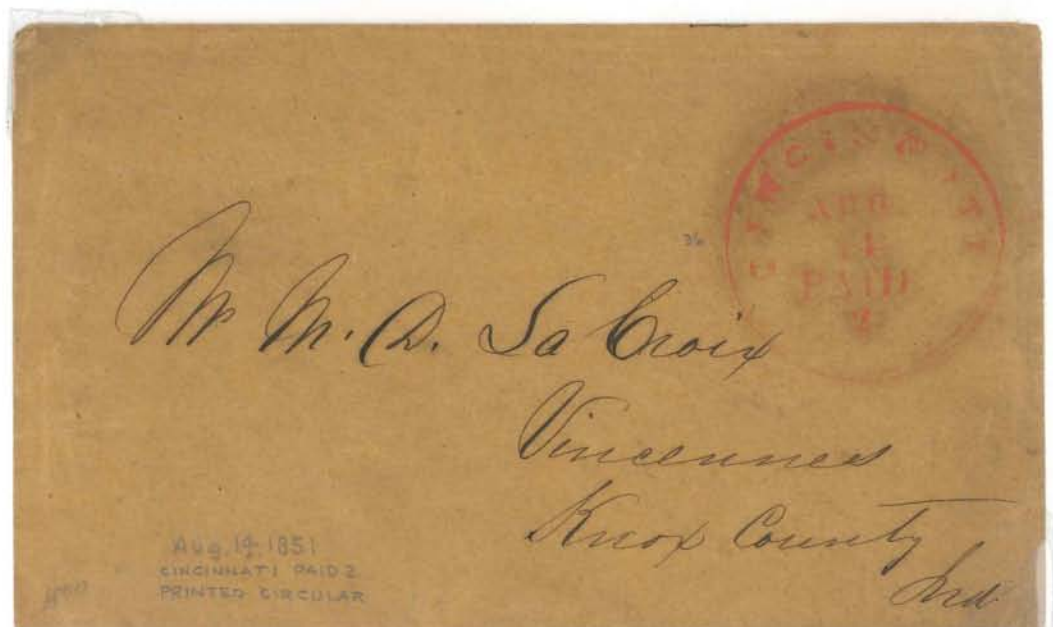 CINCINNATI
AUG
14
PAID
2
36
Mr M. D. La Croix
Vincennes
Knox County
Ind
Aug. 14. 1851
CINCINNATI PAID 2
PRINTED CIRCULAR